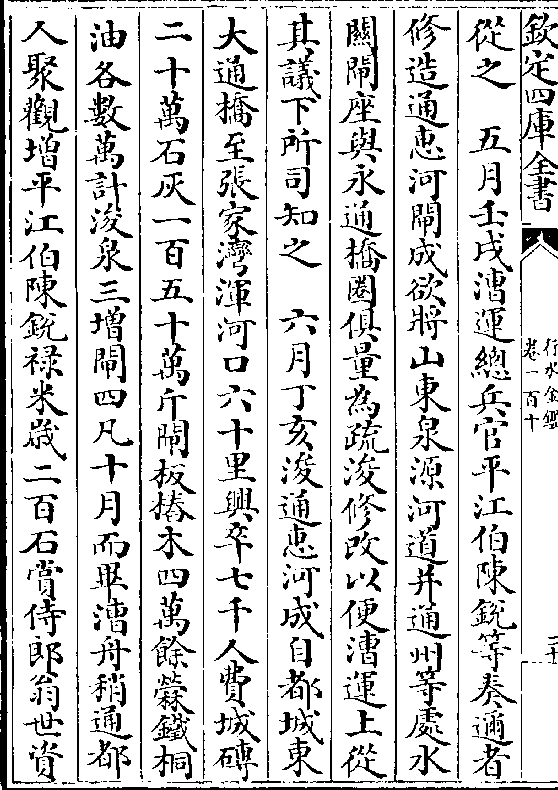 欽定四庫全書
行水金鑑
卷一百十
二十
從之　五月壬戌漕運總兵官平江伯陳銳等奏邇者
修造通惠河閘成欲將山東泉源河道并通州等處水
關閘座與永通橋圈俱量為疏浚修改以便漕運上從
其議下所司知之　六月丁亥浚通惠河成自都城東
大通橋至張家灣渾河口六十里興卒七千人費城磚
二十萬石灰一百五十萬斤閘板樁木四萬餘蔴鐵桐
油各數萬計浚泉三增閘四凡十月而畢漕舟稍通都
人聚觀增平江伯陳銳祿米歲二百石賞侍郎翁世資